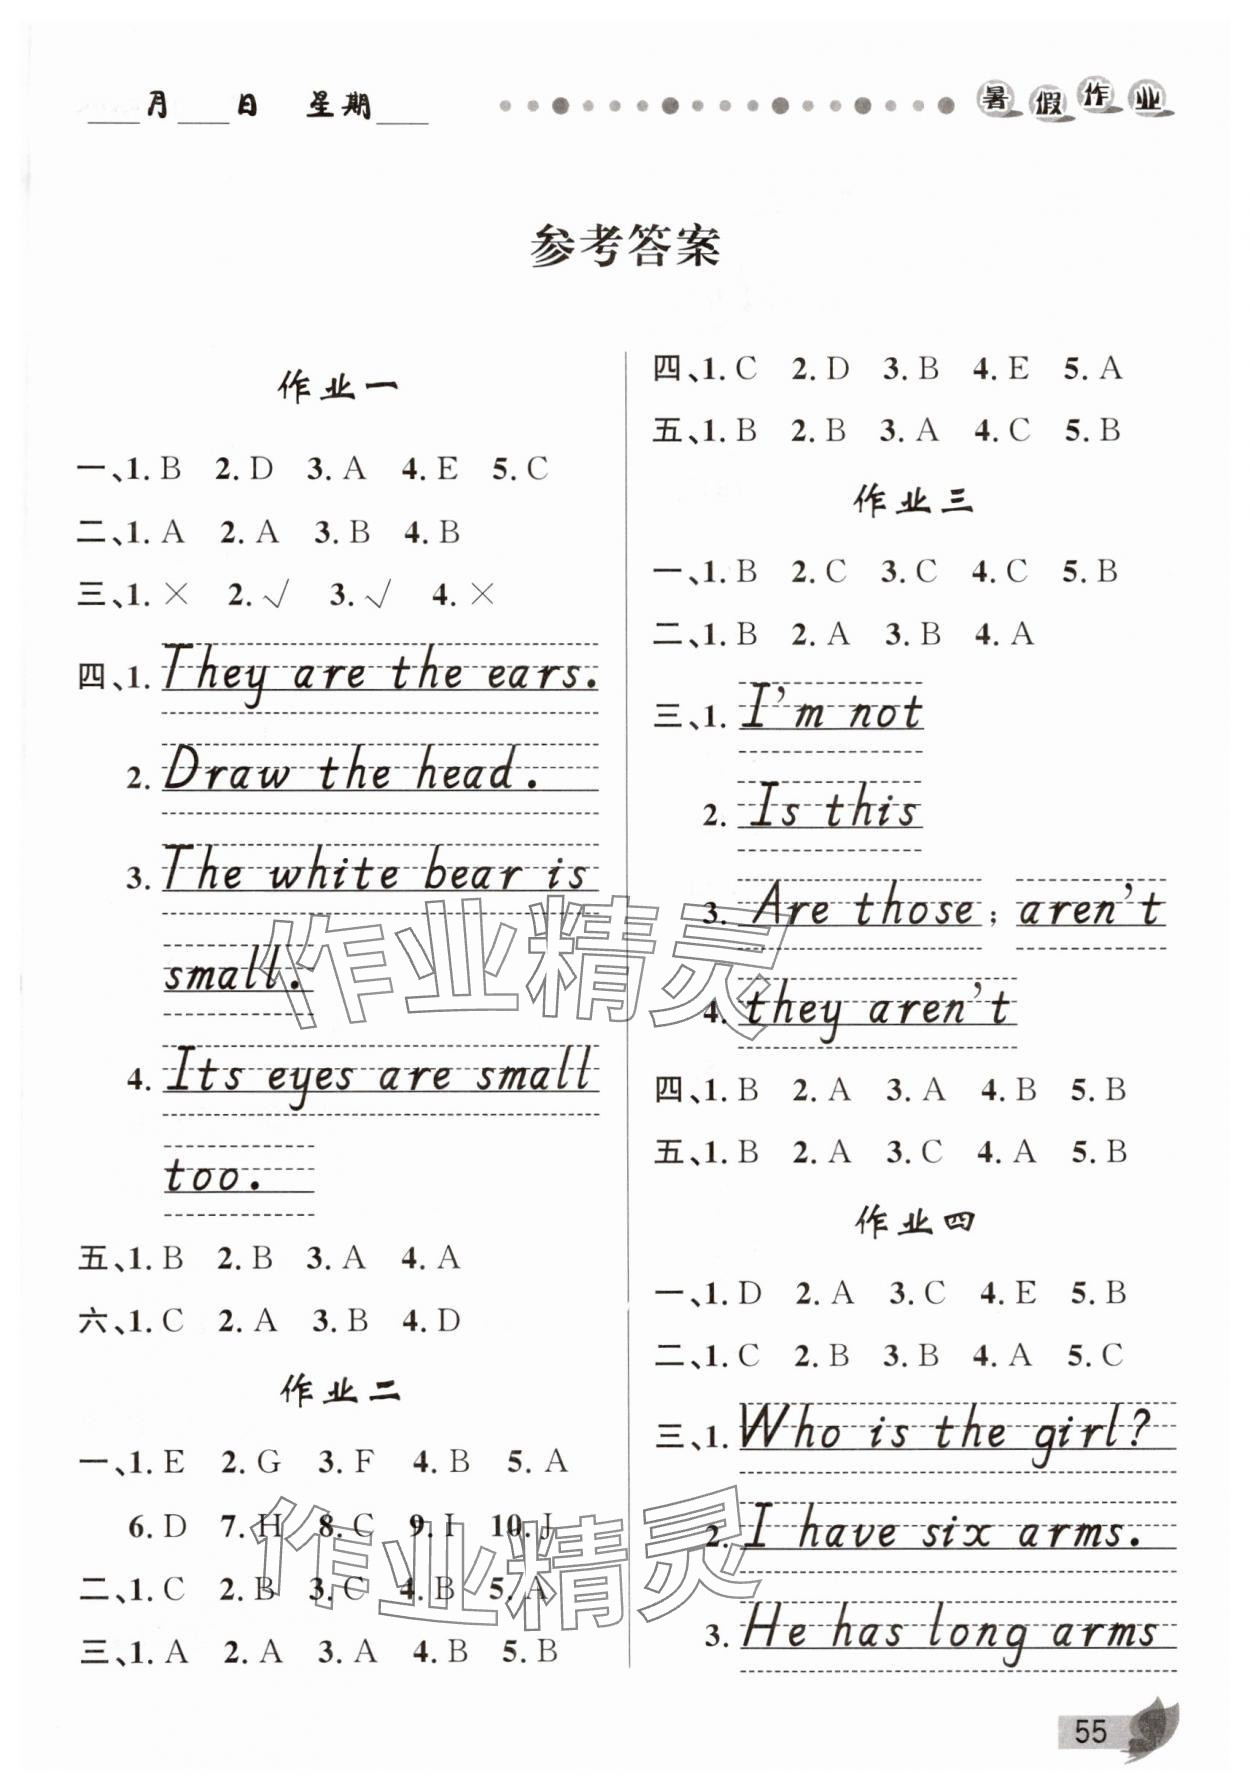 ___月___日 星期___
暑假作业
参考答案
作业一
一、1. B 2. D 3. A 4. E 5. C
二、1. A 2. A 3. B 4. B
三、1. × 2. √ 3. √ 4. ×
四、1. They are the ears.
2. Draw the head.
3. The white bear is
small.
4. Its eyes are small
too.
五、1. B 2. B 3. A 4. A
六、1. C 2. A 3. B 4. D
作业二
一、1. E 2. G 3. F 4. B 5. A
6. D 7. H 8. C 9. I 10. J
二、1. C 2. B 3. C 4. B 5. A
三、1. A 2. A 3. A 4. B 5. B
四、1. C 2. D 3. B 4. E 5. A
五、1. B 2. B 3. A 4. C 5. B
作业三
一、1. B 2. C 3. C 4. C 5. B
二、1. B 2. A 3. B 4. A
三、1. I'm not
2. Is this
3. Are those; aren't
4. they aren't
四、1. B 2. A 3. A 4. B 5. B
五、1. B 2. A 3. C 4. A 5. B
作业四
一、1. D 2. A 3. C 4. E 5. B
二、1. C 2. B 3. B 4. A 5. C
三、1. Who is the girl?
2. I have six arms.
3. He has long arms
55
作业精灵
作业精灵